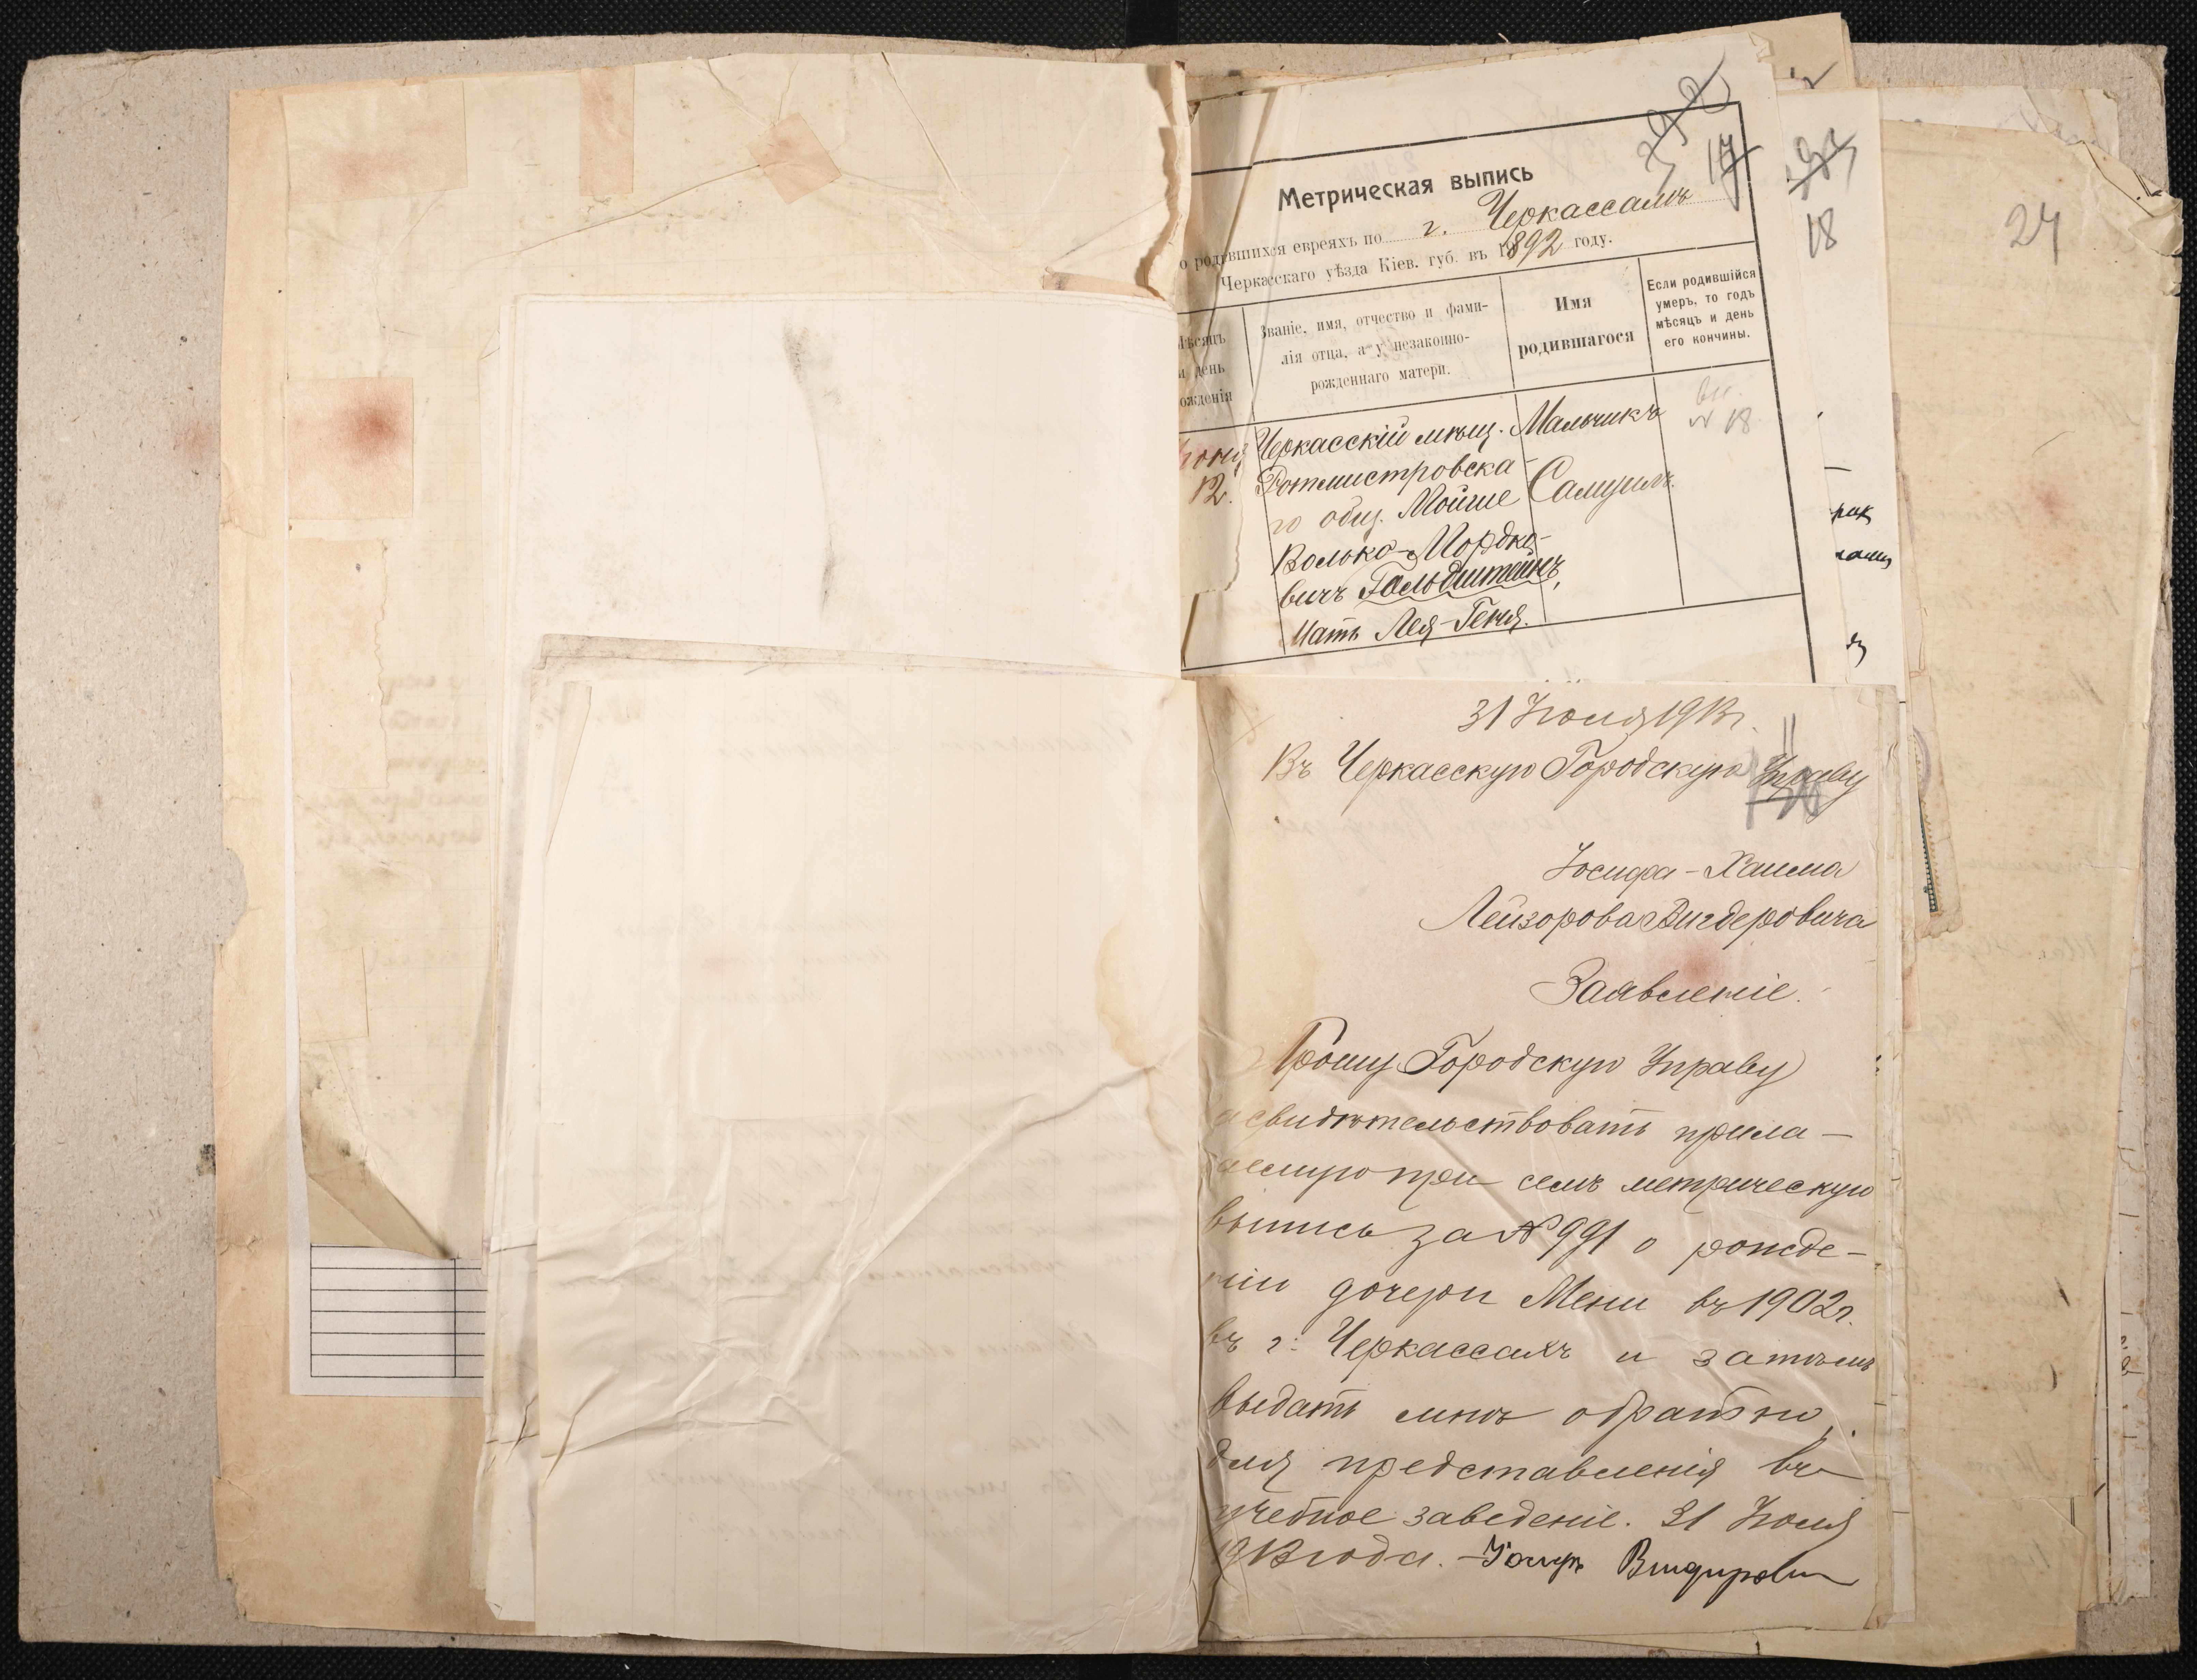 398
17
Метрическая выпись
о родившихся евреяхъ по г. Черкассамъ
Черкасскаго уѣзда Кіев. губ. въ 1892 году.
Мѣсяцъ
и день
рожденія
Званіе, имя, отчество и фами-
лія отца, а у незаконно-
рожденнаго матери.
Имя
родившагося
Если родившійся
умеръ, то годъ
мѣсяцъ и день
его кончины.
12.
Черкасскій мѣщ.
Ротмистровска-
го общ. Мойше
Волько-Мордко-
вичъ Гольдштейнъ,
Мать Лея-Геня.
Мальчикъ
Самуилъ.
№ 18
18
24
31 Іюля 1913 г.
11
Въ Черкасскую Городскую Управу
Іосифа-Хаима
Лейзорова Вигдеровича
Заявленіе.
Прошу Городскую Управу
свидѣтельствовать прила-
гаемую при семъ метрическую
выпись за № 991 о рожде-
ніи дочери Мени въ 1902 г.
въ г. Черкассахъ и затѣмъ
выдать мнѣ обратно,
для представленія въ
учебное заведеніе. 31 Іюля
1913 года.